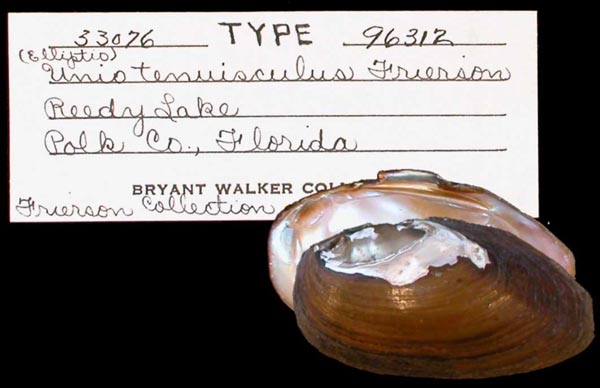 33076 TYPE 96312
(Elliptio)
Unio tenuisculus Frierson
Reedy Lake
Polk Co., Florida
BRYANT WALKER COL
Frierson Collection